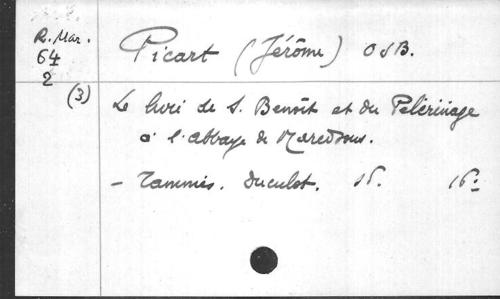 R. Mar.
64
2
(3)
Picart (Jérôme) OSB.
Le livre de S. Benoît et du Pelérinage
à l'abbaye de Maredsous.
- Tamines. Duculot. 16°